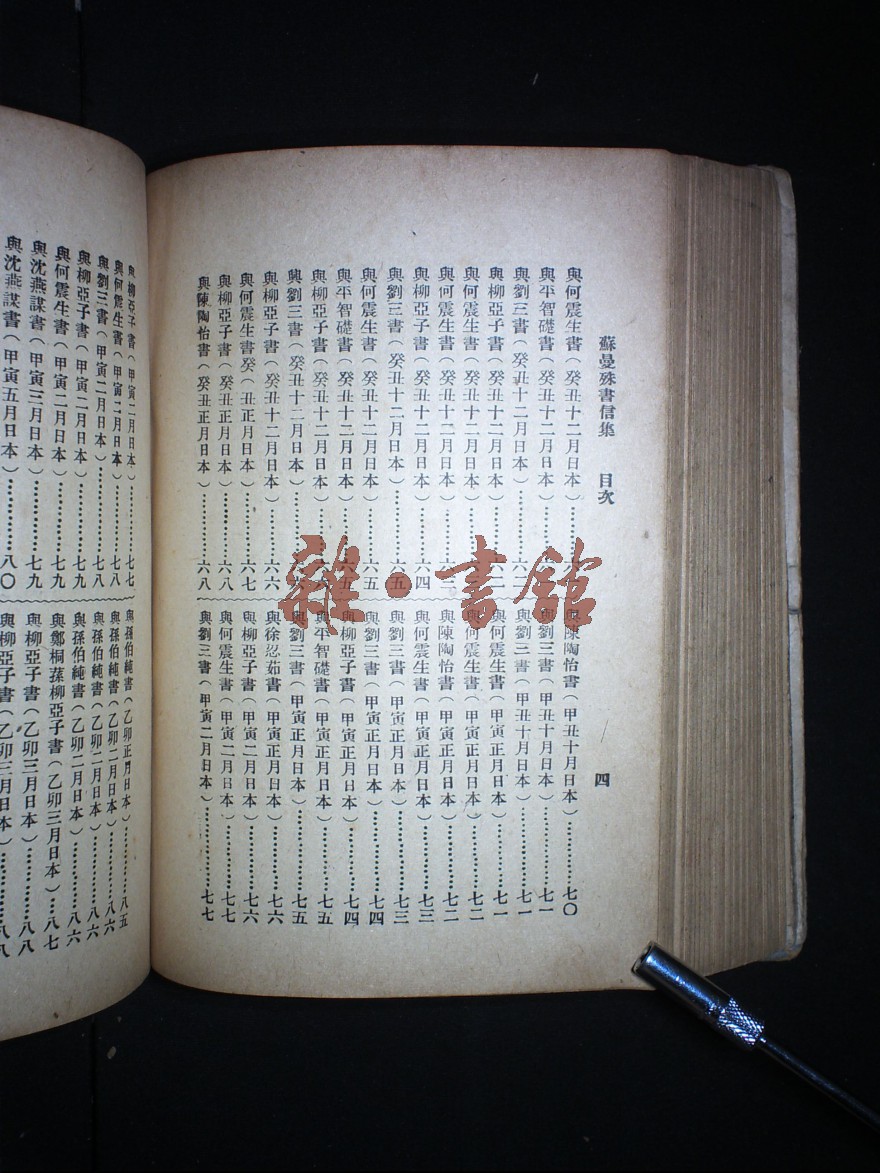 蘇曼殊書信集 目次 四
與何震生書(癸丑十二月日本)………六
與平智礎書(癸丑十二月日本)………
與劉三書(癸丑十二月日本)………六二
與柳亞子書(癸丑十二月日本)………二
與何震生書(癸丑十二月日本)………
與何震生書(癸丑十二月日本)………三
與柳亞子書(癸丑十二月日本)………六四
與劉三書(癸丑十二月日本)………六五
與何震生書(癸丑十二月日本)………六五
與平智礎書(癸丑十二月日本)………六五
與柳亞子書(癸丑十二月日本)………六
與劉三書(癸丑十二月日本)………六
與柳亞子書(癸丑十二月日本)………六六
與何震生書癸(丑正月日本)………六七
與柳亞子書(癸丑正月日本)………六八
與陳陶怡書(癸丑正月日本)………六八
與陳陶怡書(甲丑十月日本)………七〇
與劉三書(甲丑十月日本)………七一
與劉三書(甲丑十月日本)………七一
與何震生書(甲寅正月日本)………七一
與何震生書(甲寅正月日本)………七二
與陳陶怡書(甲寅正月日本)………七二
與何震生書(甲寅正月日本)………七三
與劉三書(甲寅正月日本)………七三
與劉三書(甲寅正月日本)………七四
與柳亞子書(甲寅正月日本)………七四
與平智礎書(甲寅正月日本)………七五
與劉三書(甲寅正月日本)………七五
與徐忍茹書(甲寅二月日本)………七六
與柳亞子書(甲寅二月日本)………七六
與何震生書(甲寅二月日本)………七七
與劉三書(甲寅二月日本)………七七
與柳亞子書(甲寅二月日本)………七七
與何震生書(甲寅二月日本)………七八
與劉三書(甲寅二月日本)………七八
與柳亞子書(甲寅二月日本)………七九
與何震生書(甲寅二月日本)………七九
與沈燕謀書(甲寅三月日本)………七九
與沈燕謀書(甲寅五月日本)………八〇
與孫伯純書(乙卯正月日本)………八五
與孫伯純書(乙卯二月日本)………八六
與孫伯純書(乙卯二月日本)………八六
與孫伯純書(乙卯二月日本)………八六
與鄭桐蓀柳亞子書(乙卯三月日本)…八七
與柳亞子書(乙卯三月日本)………八八
與柳亞子書(乙卯三月日本)………八八
雜·書館